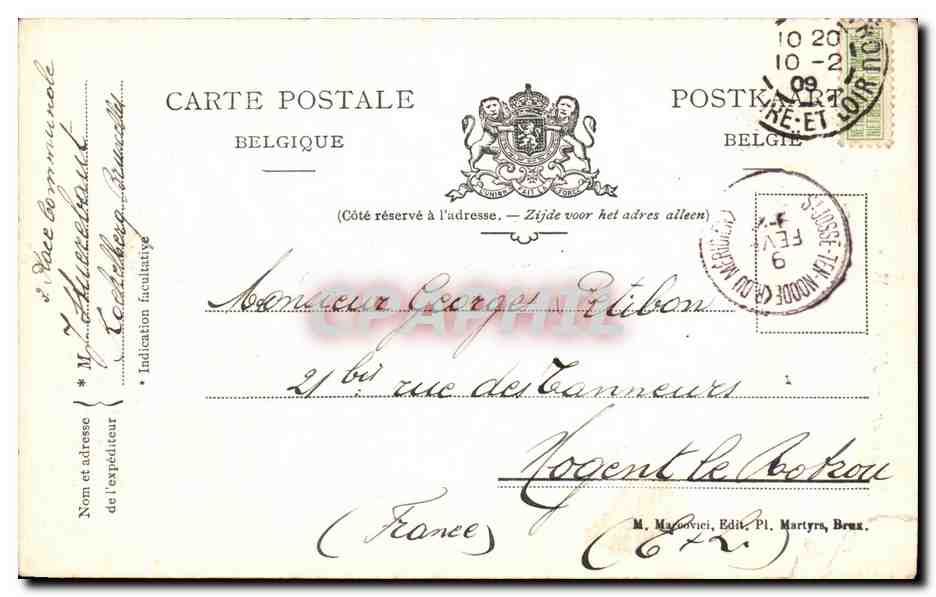 CARTE POSTALE
BELGIQUE
POSTKAART
BELGIË
L'UNION FAIT LA FORCE
(Côté réservé à l'adresse. — Zijde voor het adres alleen)
10 20
10 - 2
09
RE-ET-LOIR
ST JOSSE-TEN-NOODE (R. DU MÉRIDIEN)
9
FEVR
Monsieur Georges Petibon
21 bis rue des Tanneurs
Nogent le Rotrou
(France)
(E & L.)
CPAPHIL
M. Marcovici, Edit. Pl. Martyrs, Brux.
Nom et adresse
de l'expéditeur
* M
2 Place Communale
Koekelberg Bruxelles
* Indication facultative